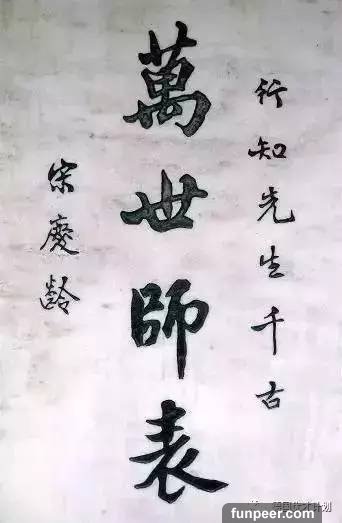 行知先生千古
萬世師表
宋慶齡
funpeer.com